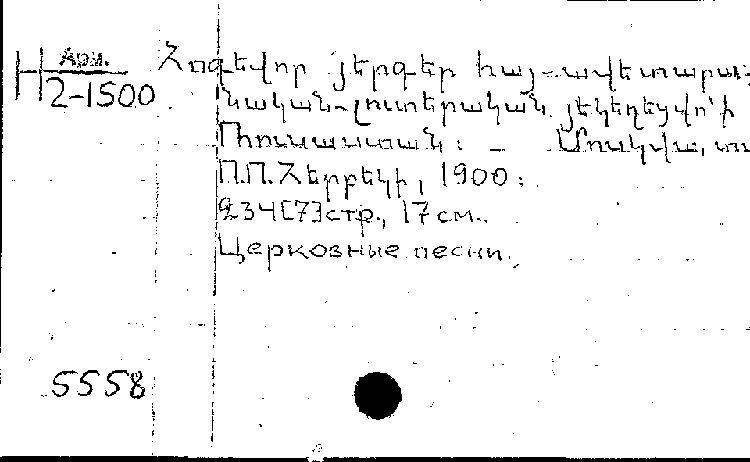 Арм.
Н 2-1500
Հոգեվոր յերգեր հայ-ավետարա-
նական-լուտերական յեկեղեցվո՛ ի
Ռուսաստան։ – Մոսկվա, տ
П.П. Հերբեկի, 1900։
234[7]стр., 17 см.
Церковные песни.
5558